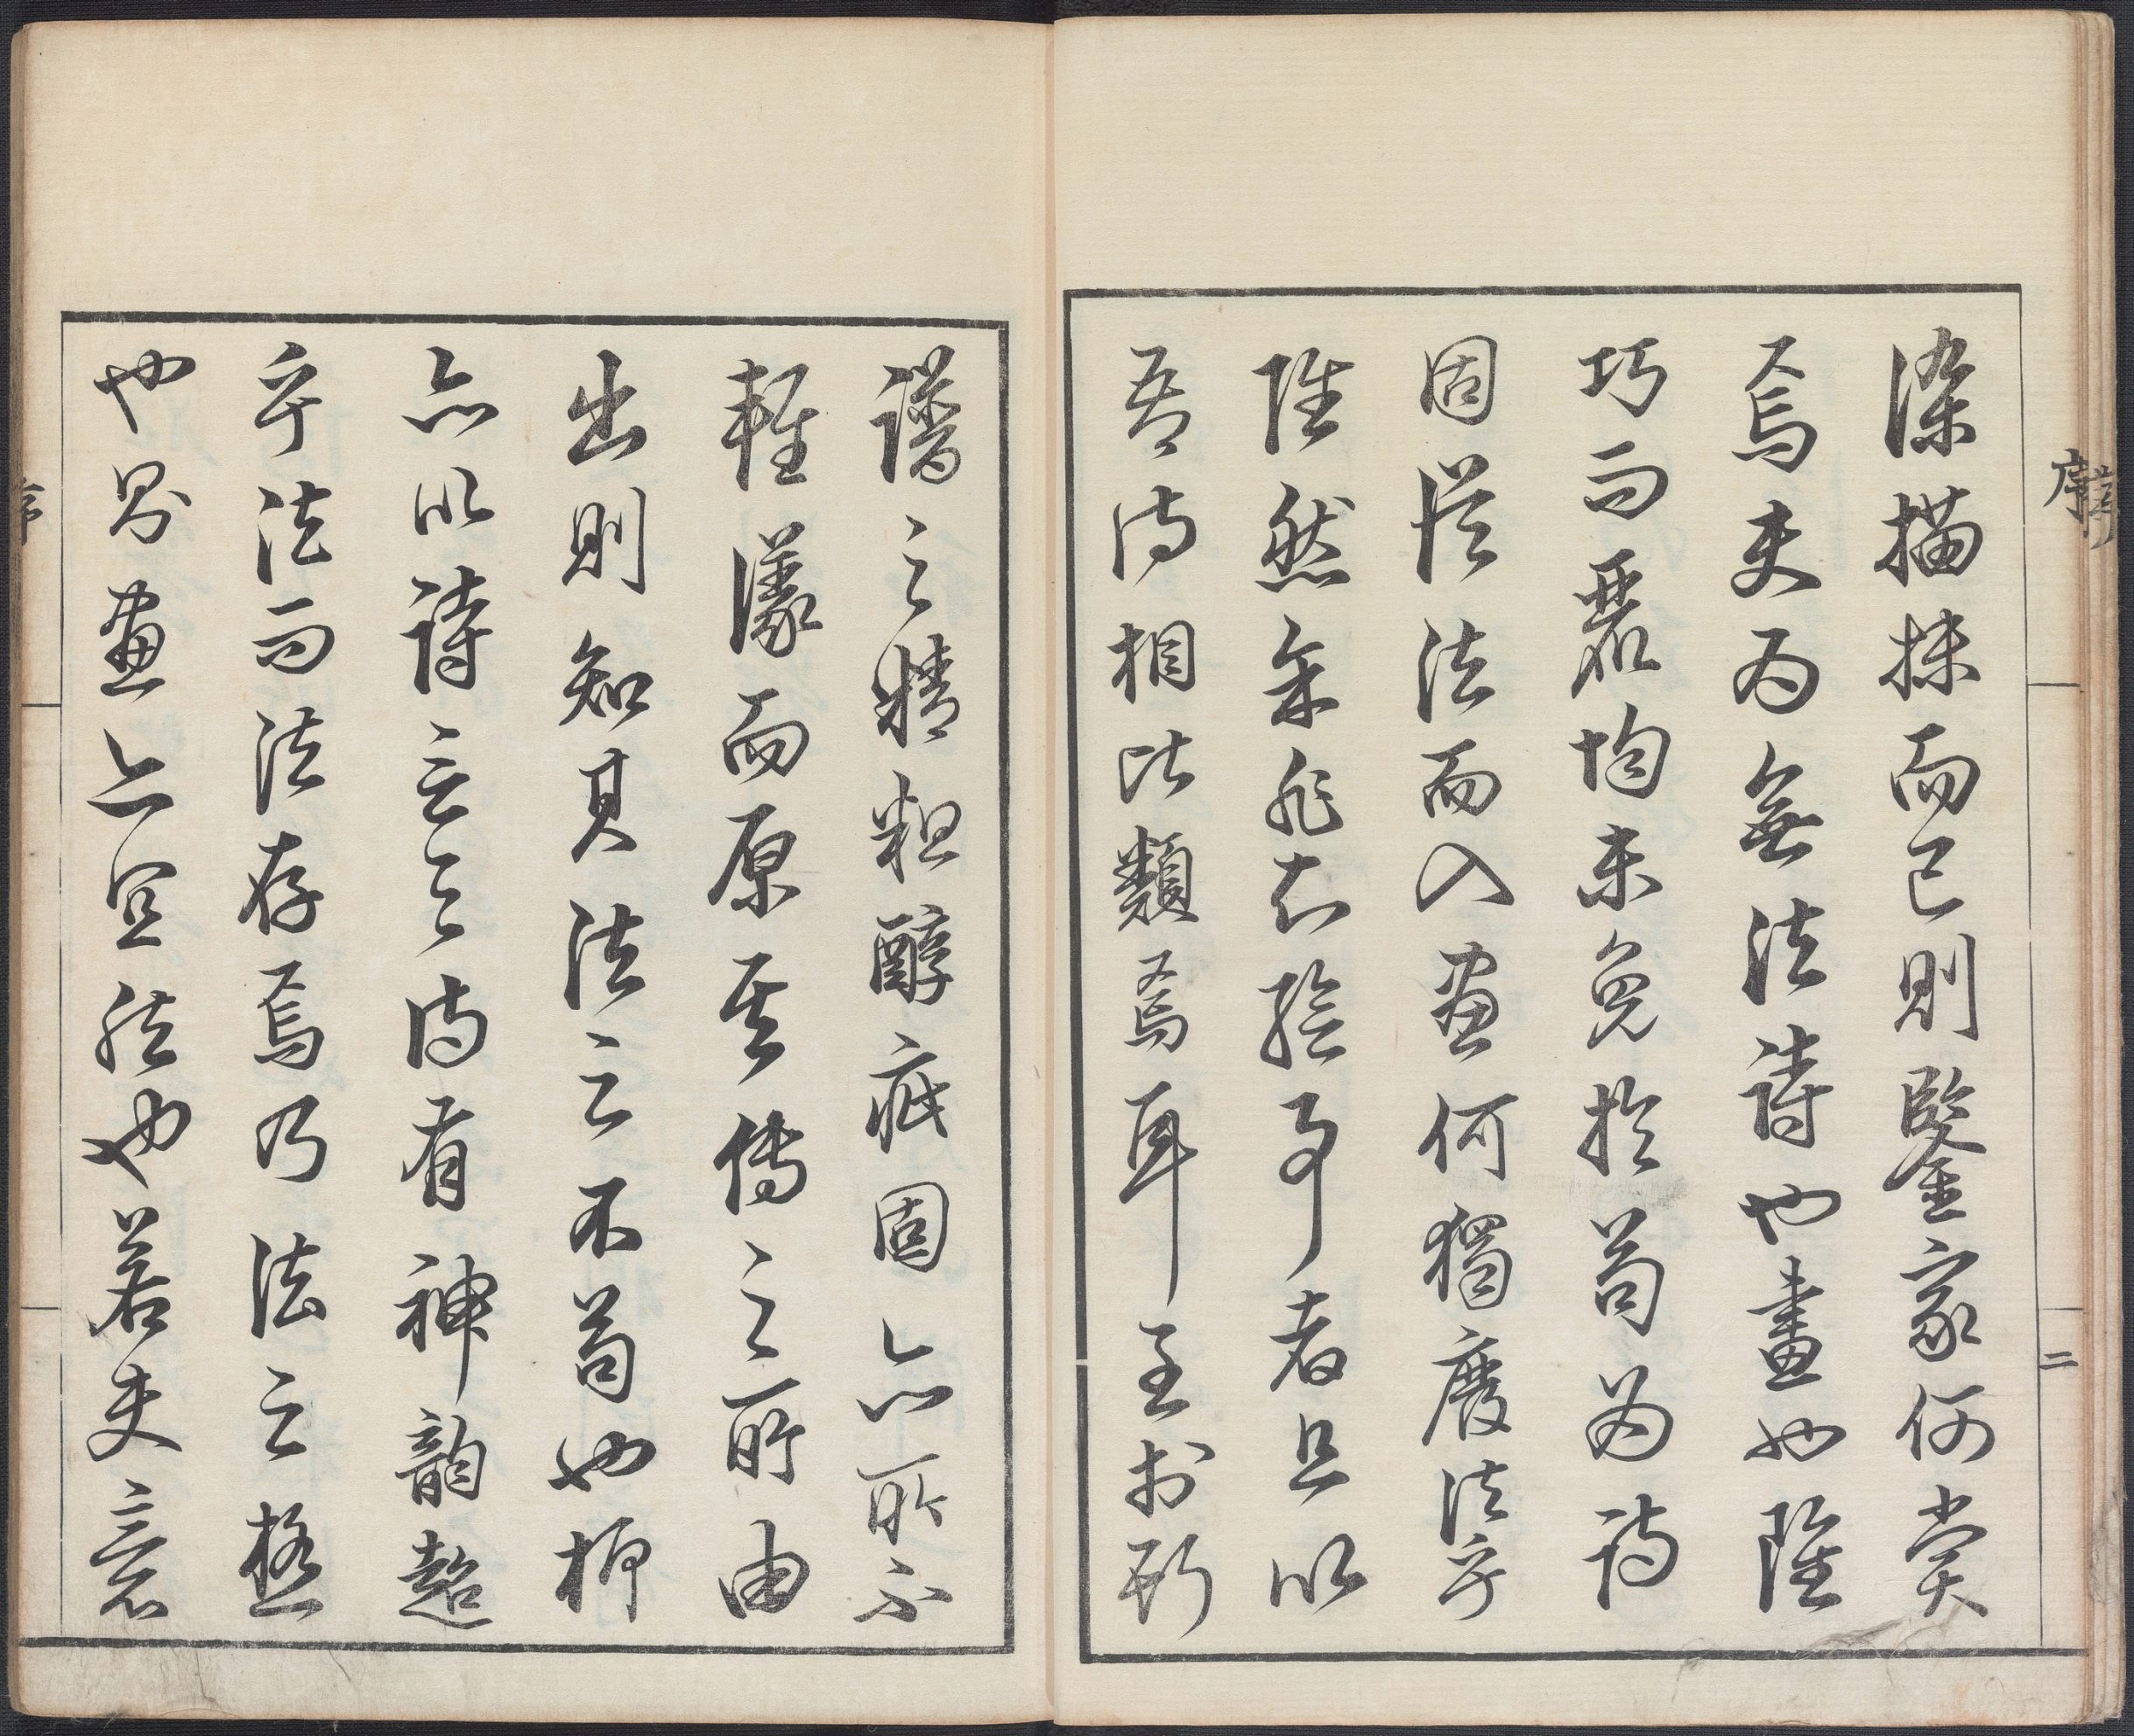 序
二
染描抹而已則鑒家何賞
焉夫為無法詩也畫也雖
巧而麗均未免於苟為詩
固從法而入畫何獨廢法乎
雖然余非知繪事者且以
吾詩相比類焉耳至於斯
譜之精粗醇疵固亦所不
輕議而原其傳之所由
出則知其法之不苟也抑
亦以詩言之詩有神韻超
乎法而法存焉乃法之極
也畫亦宜然也若夫意